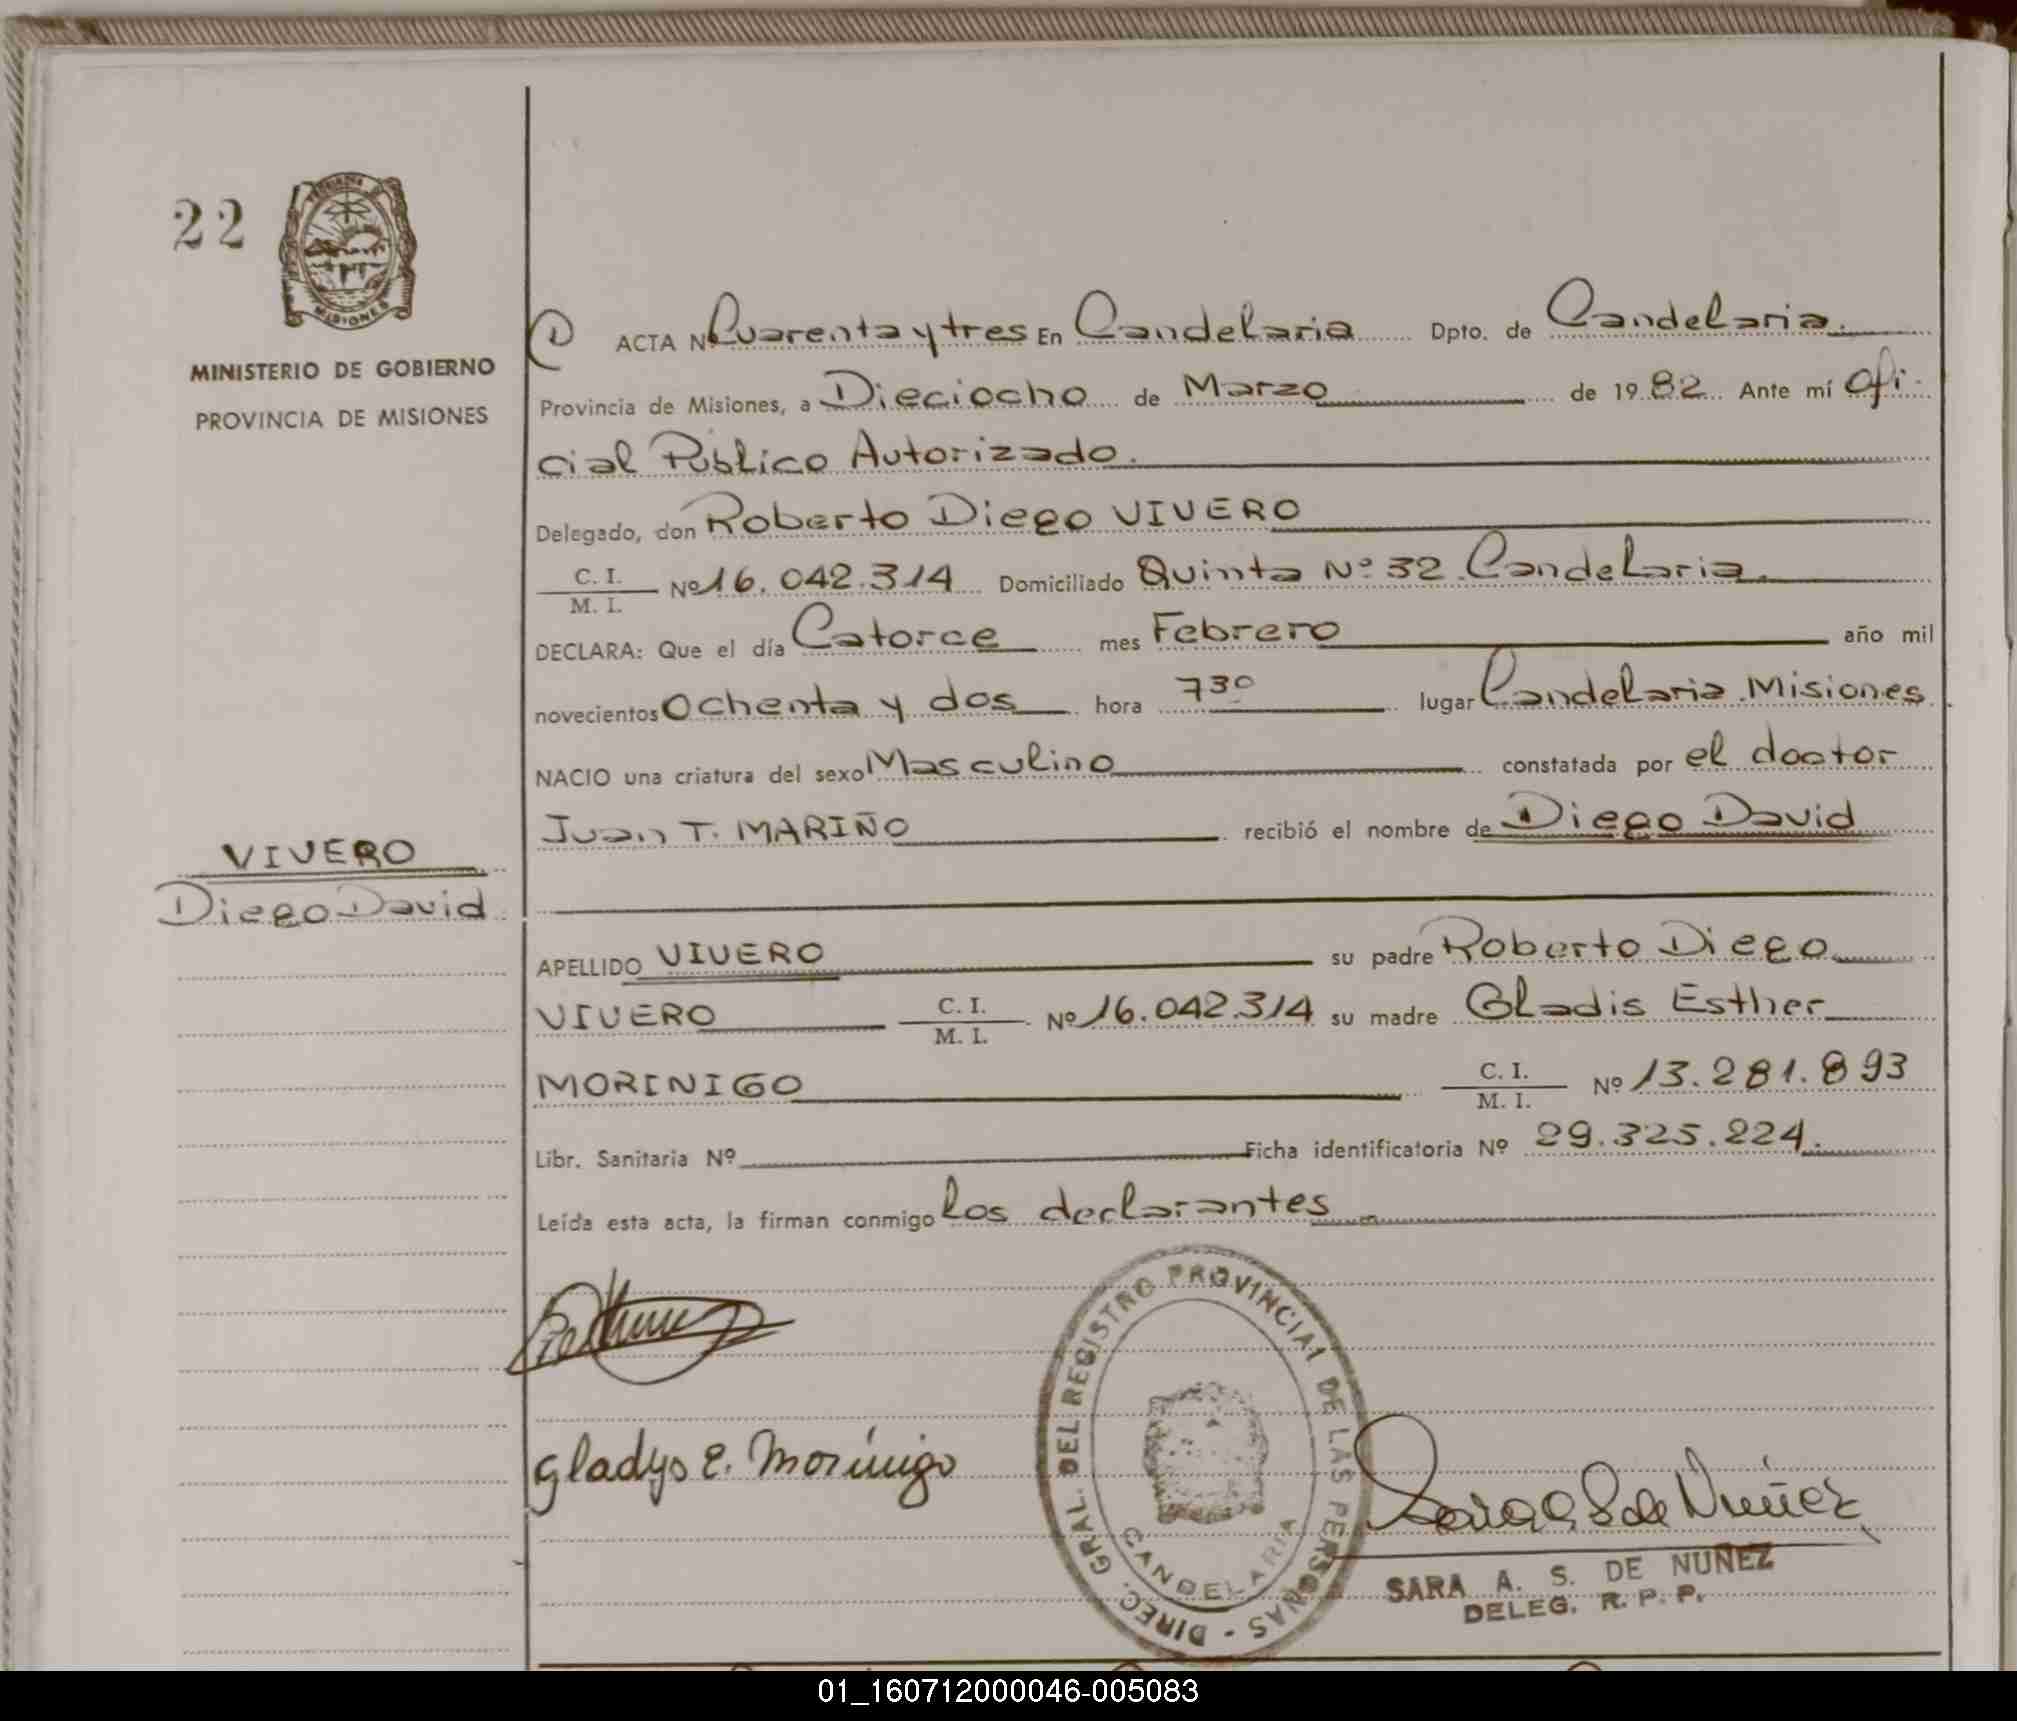 22
PROVINCIA DE
MISIONES
MINISTERIO DE GOBIERNO
PROVINCIA DE MISIONES
VIVERO
Diego David
1 ACTA Nº Cuarenta y tres En Candelaria Dpto. de Candelaria.
Provincia de Misiones, a Dieciocho de Marzo de 1982 Ante mí Ofi-
cial Público Autorizado.
Delegado, don Roberto Diego VIVERO
C. I. / M. I. Nº 16.042.314 Domiciliado Quinta Nº 32. Candelaria.
DECLARA: Que el día Catorce mes Febrero año mil
novecientos Ochenta y dos hora 730 lugar Candelaria. Misiones
NACIO una criatura del sexo Masculino constatada por el doctor
Juan T. MARIÑO recibió el nombre de Diego David
APELLIDO VIVERO su padre Roberto Diego
VIVERO C. I. / M. I. Nº 16.042.314 su madre Gladis Esther
MORINIGO C. I. / M. I. Nº 13.281.893
Libr. Sanitaria Nº Ficha identificatoria Nº 29.325.224.
Leída esta acta, la firman conmigo los declarantes
Gladys E. Morínigo
DIREC. GRAL. DEL REGISTRO PROVINCIAL DE LAS PERSONAS -
CANDELARIA
Sara A. S. de Nuñez
SARA A. S. DE NUÑEZ
DELEG. R. P. P.
01_160712000046-005083